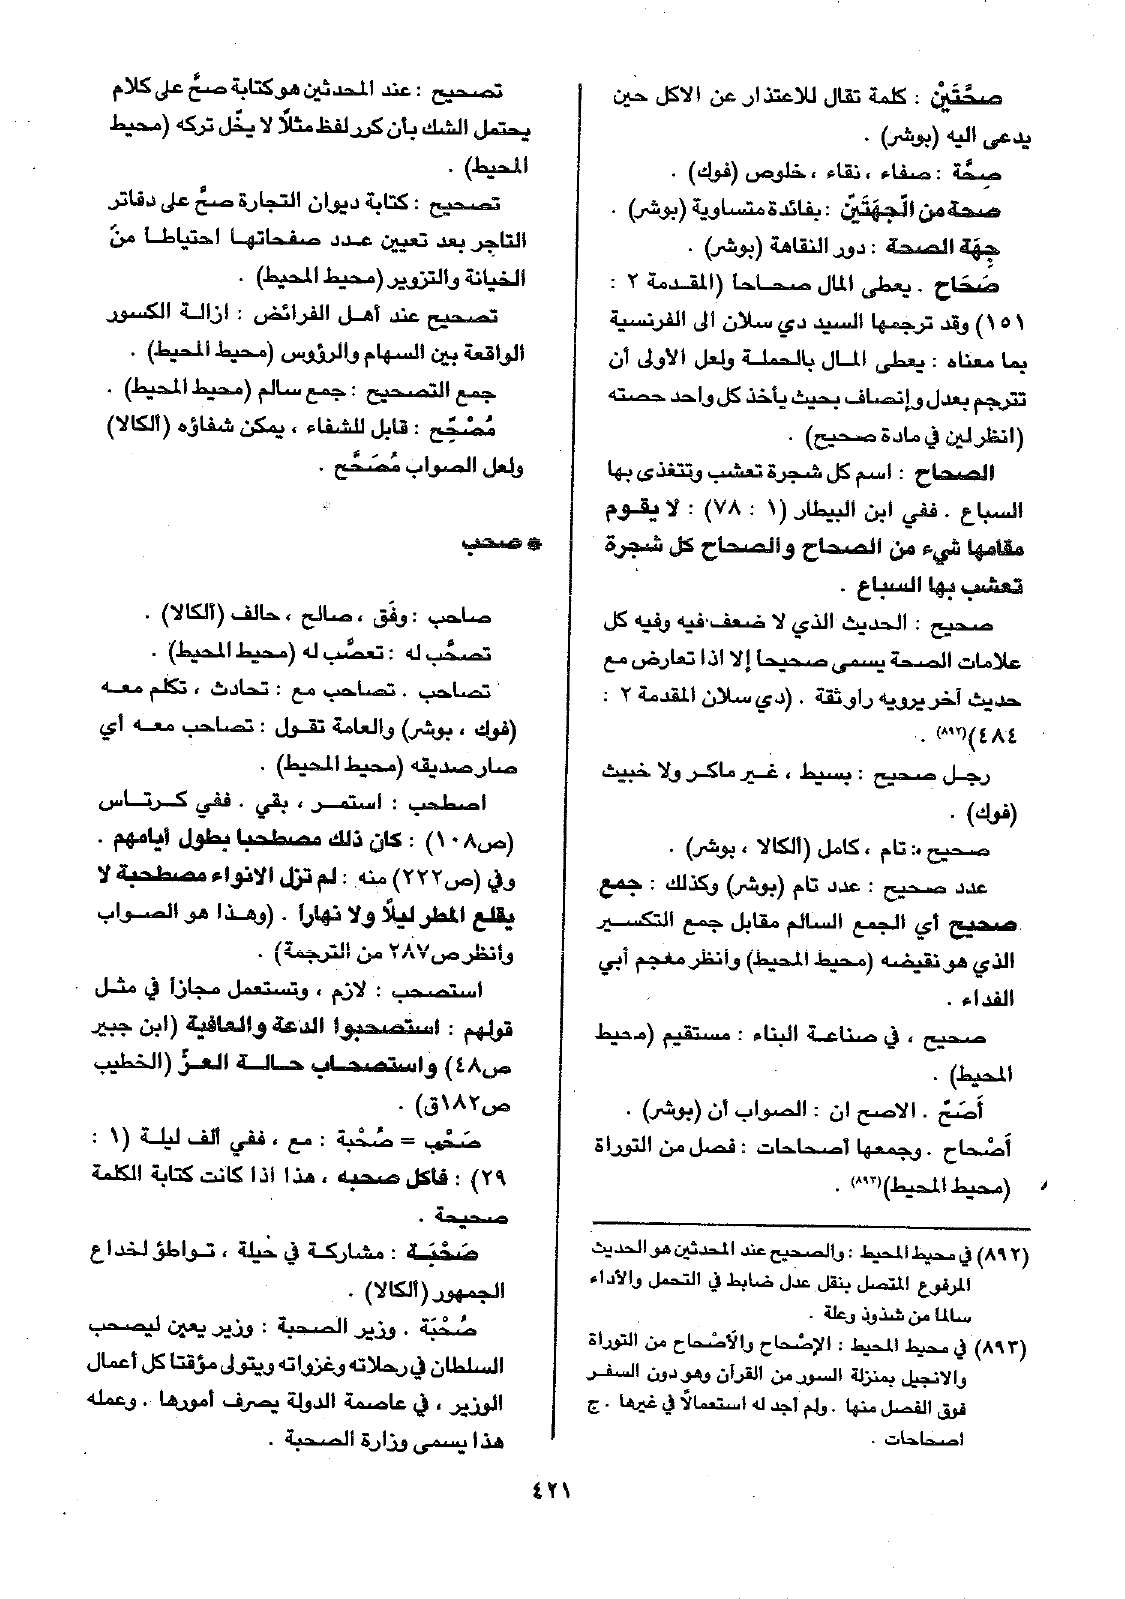 صحَّتَيْن : كلمة تقال للاعتذار عن الاكل حين
يدعى اليه (بوشر) .
صِحَّة : صفاء ، نقاء ، خلوص (فوك) .
صحة من الجِهَتَيْن : بفائدة متساوية (بوشر) .
جِهَة الصحة : دور النقاهة (بوشر) .
صَحَاح . يعطى المال صحاحا (المقدمة ٢ :
١٥١) وقد ترجمها السيد دي سلان الى الفرنسية
بما معناه : يعطى المال بالجملة ولعل الأولى أن
تترجم بعدل وإنصاف بحيث يأخذ كل واحد حصته
(انظر لين في مادة صحيح) .
الصحاح : اسم كل شجرة تعشب وتتغذى بها
السباع . ففي ابن البيطار (١ : ٧٨) : لا يقوم
مقامها شيء من الصحاح والصحاح كل شجرة
تعشب بها السباع .
صحيح : الحديث الذي لا ضعف فيه وفيه كل
علامات الصحة يسمى صحيحا إلا اذا تعارض مع
حديث آخر يرويه راو ثقة . (دي سلان المقدمة ٢ :
٤٨٤)(٨٩٢) .
رجل صحيح : بسيط ، غير ماكر ولا خبيث
(فوك) .
صحيح : تام ، كامل (ألكالا ، بوشر) .
عدد صحيح : عدد تام (بوشر) وكذلك : جمع
صحيح أي الجمع السالم مقابل جمع التكسير
الذي هو نقيضه (محيط المحيط) وأنظر معجم أبي
الفداء .
صحيح ، في صناعة البناء : مستقيم (محيط
المحيط) .
أَصَحّ . الاصح ان : الصواب أن (بوشر) .
أَصْحاح . وجمعها أصحاحات : فصل من التوراة
(محيط المحيط)(٨٩٣) .
(٨٩٢) في محيط المحيط : والصحيح عند المحدثين هو الحديث
المرفوع المتصل بنقل عدل ضابط في التحمل والأداء
سالما من شذوذ وعلة .
(٨٩٣) في محيط المحيط : الإصْحاح والأصْحاح من التوراة
والانجيل بمنزلة السور من القرآن وهو دون السفر
فوق الفصل منها . ولم أجد له استعمالاً في غيرها . ج
اصحاحات .
تصحيح : عند المحدثين هو كتابة صحَّ على كلام
يحتمل الشك بأن كرر لفظ مثلاً لا يخّل تركه (محيط
المحيط) .
تصحيح : كتابة ديوان التجارة صحَّ على دفاتر
التاجر بعد تعيين عدد صفحاتها احتياطا من
الخيانة والتزوير (محيط المحيط) .
تصحيح عند أهل الفرائض : ازالة الكسور
الواقعة بين السهام والرؤوس (محيط المحيط) .
جمع التصحيح : جمع سالم (محيط المحيط) .
مُصْحِّح : قابل للشفاء ، يمكن شفاؤه (ألكالا)
ولعل الصواب مُصَحَّح .
* صحب
صاحب : وفَق ، صالح ، حالف (ألكالا) .
تصحَّب له : تعصَّب له (محيط المحيط) .
تصاحب . تصاحب مع : تحادث ، تكلم معه
(فوك ، بوشر) والعامة تقول : تصاحب معه أي
صار صديقه (محيط المحيط) .
اصطحب : استمر ، بقي . ففي كرتاس
(ص١٠٨) : كان ذلك مصطحبا بطول أيامهم .
وفي (ص٢٢٢) منه : لم تزل الانواء مصطحبة لا
يقلع المطر ليلاً ولا نهارا . (وهذا هو الصواب
وأنظر ص٢٨٧ من الترجمة) .
أستصحب : لازم ، وتستعمل مجازا في مثل
قولهم : استصحبوا الدعة والعافية (ابن جبير
ص٤٨) واستصحاب حالة العزّ (الخطيب
ص١٨٢ق) .
صَحْب = صُحْبة : مع ، ففي ألف ليلة (١ :
٢٩) : فاكل صحبه ، هذا اذا كانت كتابة الكلمة
صحيحة .
صَحْبَة : مشاركة في حيلة ، تواطؤ لخداع
الجمهور (ألكالا) .
صُحْبَة . وزير الصحبة : وزير يعين ليصحب
السلطان في رحلاته وغزواته ويتولى مؤقتا كل أعمال
الوزير ، في عاصمة الدولة يصرف أمورها . وعمله
هذا يسمى وزارة الصحبة .
٤٢١